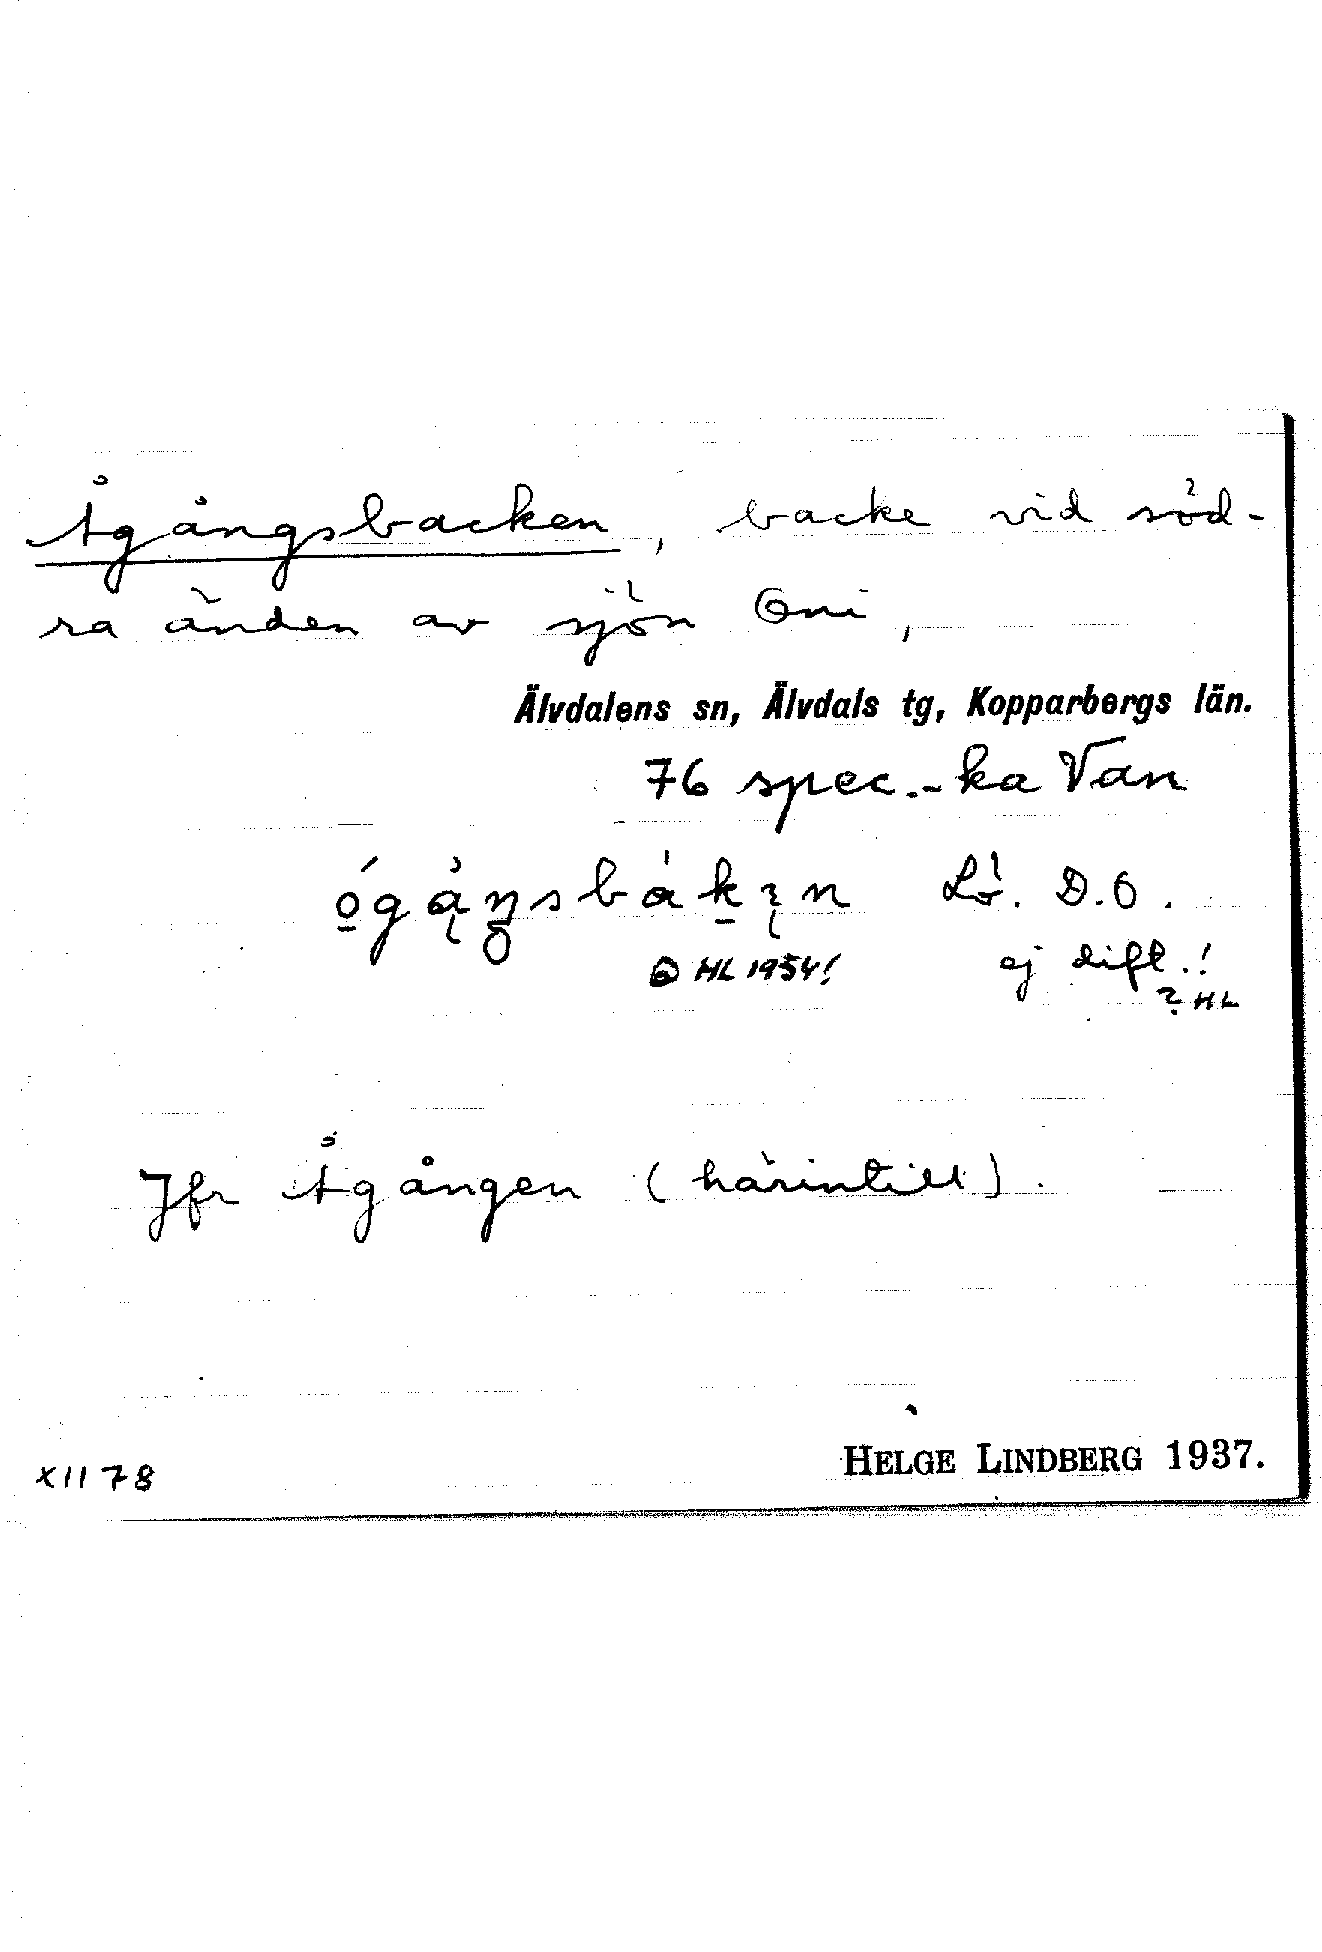 Ågångsbacken, backe vid söd-
ra änden av sjön Oni,
Älvdalens sn, Älvdals tg, Kopparbergs län.
76 spec.-ka Van
Lö. D.O.
HL 1954! ej dift.!
? HL
Jfr Ågången (härintill).
HELGE LINDBERG 1937.
XII 78